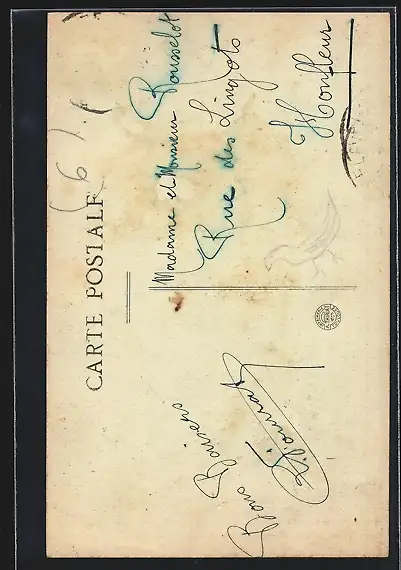 (6)
CARTE POSTALE
Bons Baisers
Madame et Monsieur Rousselot
Rue des Lingots
Honfleur